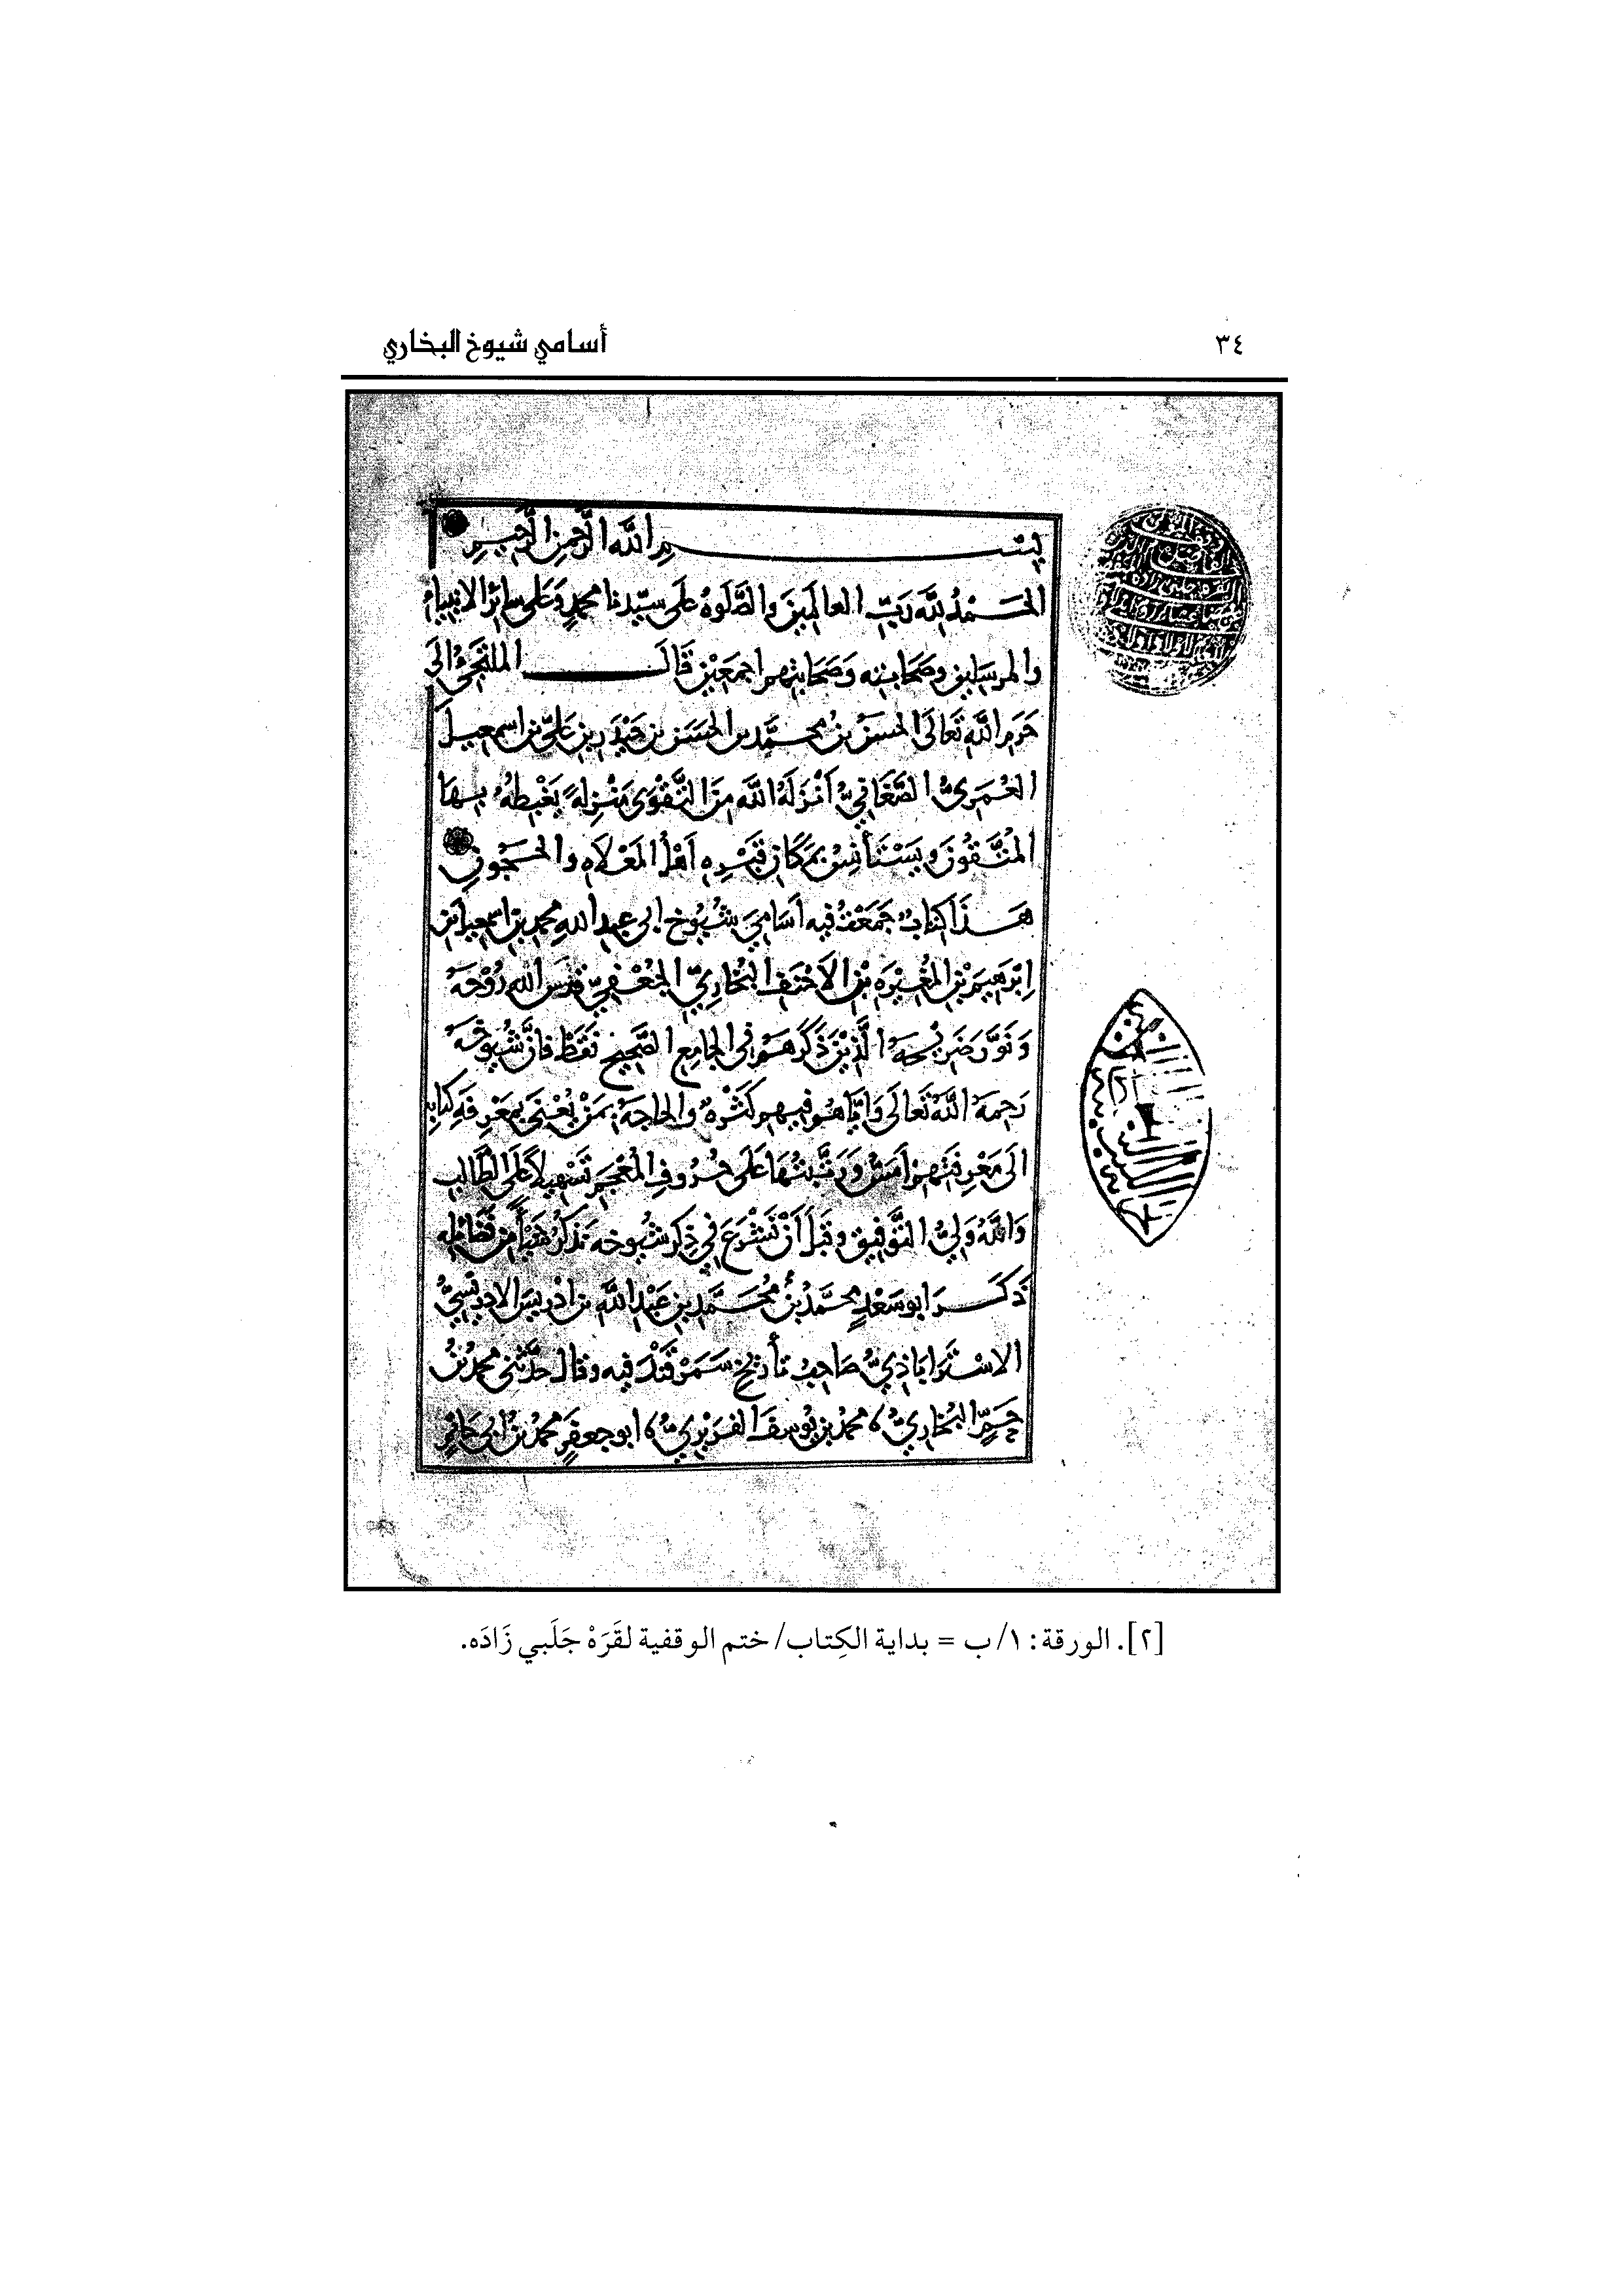 ٣٤
أسامي شيوخ البخاري
بِسْمِ اللَّه الرَّحْمنِ الرَّحِيمِ
الحَمْدُ لِلَّهِ رَبِّ العالَمِيْنَ والصَّلَوةُ عَلَى سَيِّدنا محمدٍ وَعَلَى سائرِ الانبياءِ
والمرسَلِين وصَحَابتِه وَصَحَابتِهم اجمَعِيْن قَالَ الملتَجِئُ الَى
حَرَمِ اللَّهِ تَعَالَى الحسَنُ بنُ محمَّدِ بن الحَسَن بن حَيْدَر بن عَلِيِّ بن اسمعيلَ
العُمَرِيُّ الصَّغَانِيُّ أَنْزَلَهُ اللَّه مِنَ التَّقْوَى مَنْزِلَةً يَغْبِطُهُ بِهَا
المُتَّقُونَ وَيَسْتَأنِسُ بِمَكَانِ قَبْرِهِ أَهْلُ المَعْلَاهِ والحَجُونِ
هَذَا كِتَابٌ جَمَعْتُ فيه أَسَامِيَ شُيُوخِ ابى عبد اللهِ محمدِ بنِ اسْمعيلَ بنِ
اِبْرَهِيمَ بْنِ المُغِيْرَهِ بْنِ الاَحْنَفِ البُخَارِيِّ الجُعْفِيِّ قَدَّسَ الله رُوْحَهُ
وَنَوَّرَ ضَرِيْحَهُ الَّذِيْنَ ذَكَرَهُمْ فِي الجَامِعِ الصَّحِيْحِ فَقَطْ فَانَّ شُيُوخَهُ
رَحِمَهُ اللَّهُ تَعَالَى وَايَّاهُمْ فيهم كَثْرهٌ والحاجَةُ بِمَنْ يُعْنَى بِمَعْرِفَهِ كِتَابِهِ
الَى مَعْرِفَتِهِمْ أَمَسُّ وَرَتَّبْتُهَا عَلَى حُرُوفِ المُعْجَمِ تَسْهِيلاً عَلَى الطَّالِبِ
وَاللَّهُ وَلِيُّ التَّوْفِيقِ وقَبْلَ أَنْ نَشْرَعَ فِي ذِكرِ شُيُوخه نَذكُرُ شَيْأً مِن فَضَائِلِه
ذَكَرَ ابو سَعْدٍ محمَّدُ بْنُ مُحَمَّدِ بن عَبْدِ اللَّهِ بن ادْرِيسَ الادرِيسيُّ
الاسْتَرَابَاذِيُّ صَاحِبُ تأريخِ سَمَرْقَنْدَ فيه وقال حَدَّثَنِي محمدُ بْنُ
حَمِّ البُخَارِيُّ محمدُ بن يُوسُفَ الفَرَبْرِيُّ ابو جعفرٍ محمدُ بنُ ابي حَاتِمٍ
[٢]. الورقة: ١/ ب = بداية الكِتاب/ ختم الوقفية لقَرَهْ جَلَبي زَادَه.